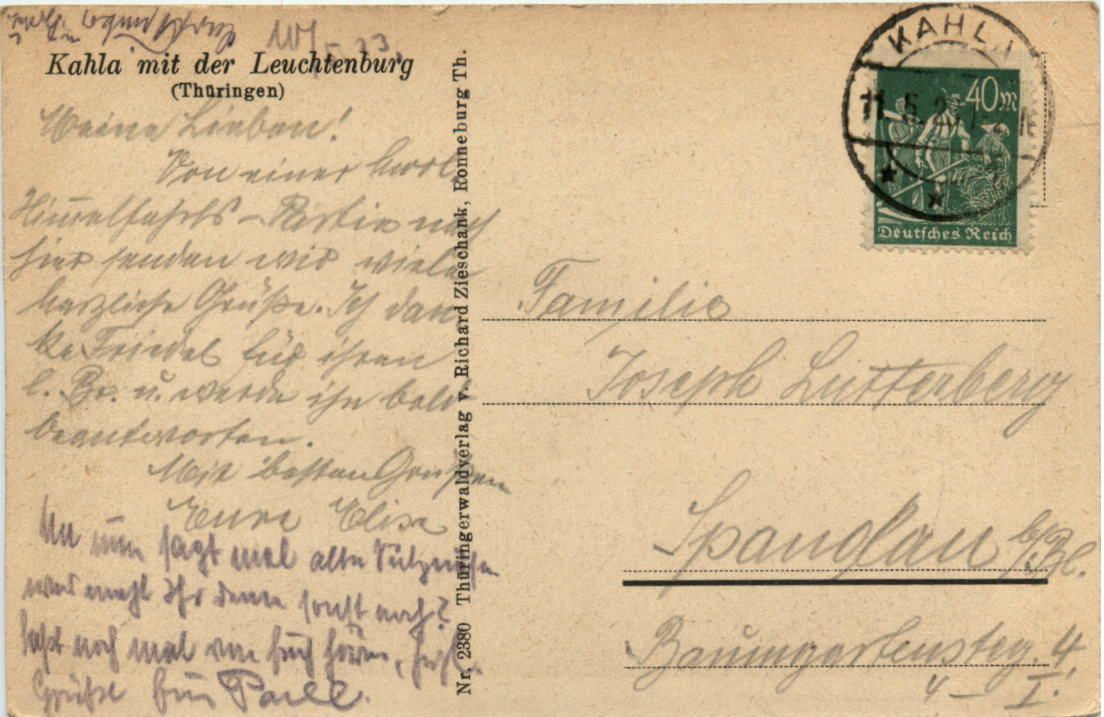 10/5. 23.
Kahla mit der Leuchtenburg
(Thüringen)
Meine Lieben!
Von einer
Himmelfahrts-Partie nach
hier senden wir viele
herzliche Grüße. Ich dan
ke Friedel für ihren
l. Br. u. werde ihn bald
beantworten.
Mit besten Grüßen
Eure Elise
Nu nun sagt mal alte
was macht Ihr denn sonst noch?
Laßt noch mal von Euch hören,
Grüße Euer Paul.
Nr. 2380 Thüringerwaldverlag v. Richard Zieschank, Ronneburg Th.
KAHLA
11.5.23
40 m
Deutsches Reich
Familie
Joseph Lutterberg
Spandau b/Bl.
Baumgartensteg. 4.
I.